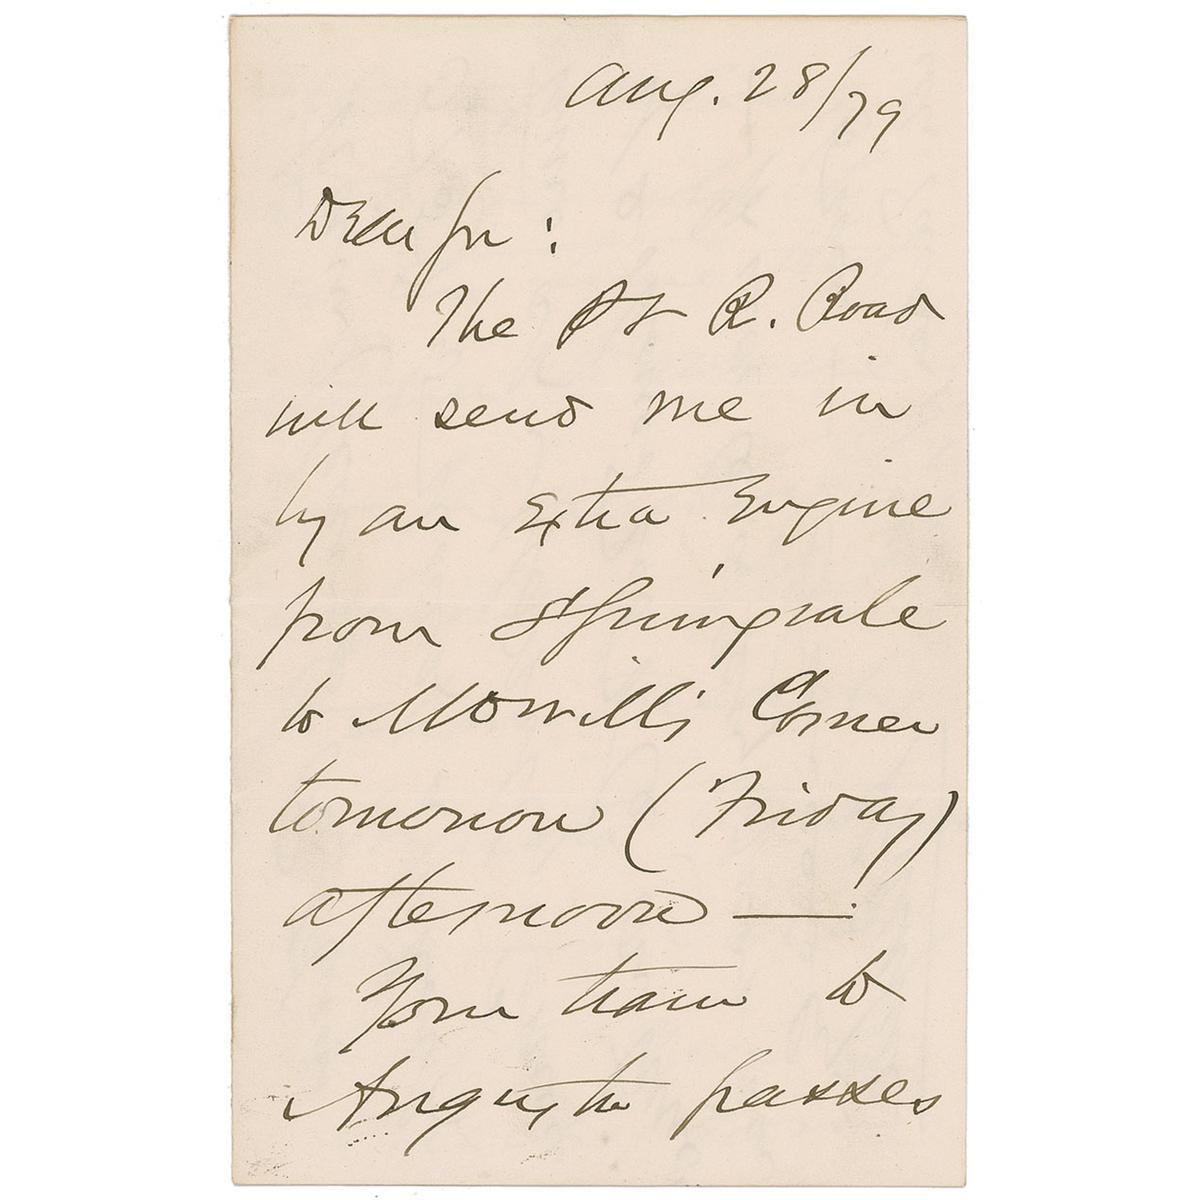 Aug. 28/79
Dear Sir:
The P & R. Road
will send me in
by an Extra Engine
from Springvale
to Morrill's Corner
tomorrow (Friday)
afternoon —
Your train to
Augusta passes